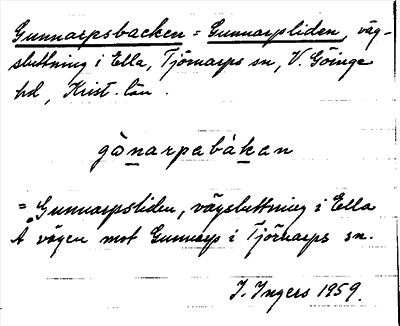 Gunnarpsbacken = Gunnarpsliden, väg-
sluttning i Ella, Tjörnarps sn, V. Göinge
hd, Krist. län.
gònarpabàkan
= Gunnarpsliden, vägsluttning i Ella
Å vägen mot Gunnarp i Tjörnarps sn.
I. Ingers 1959.